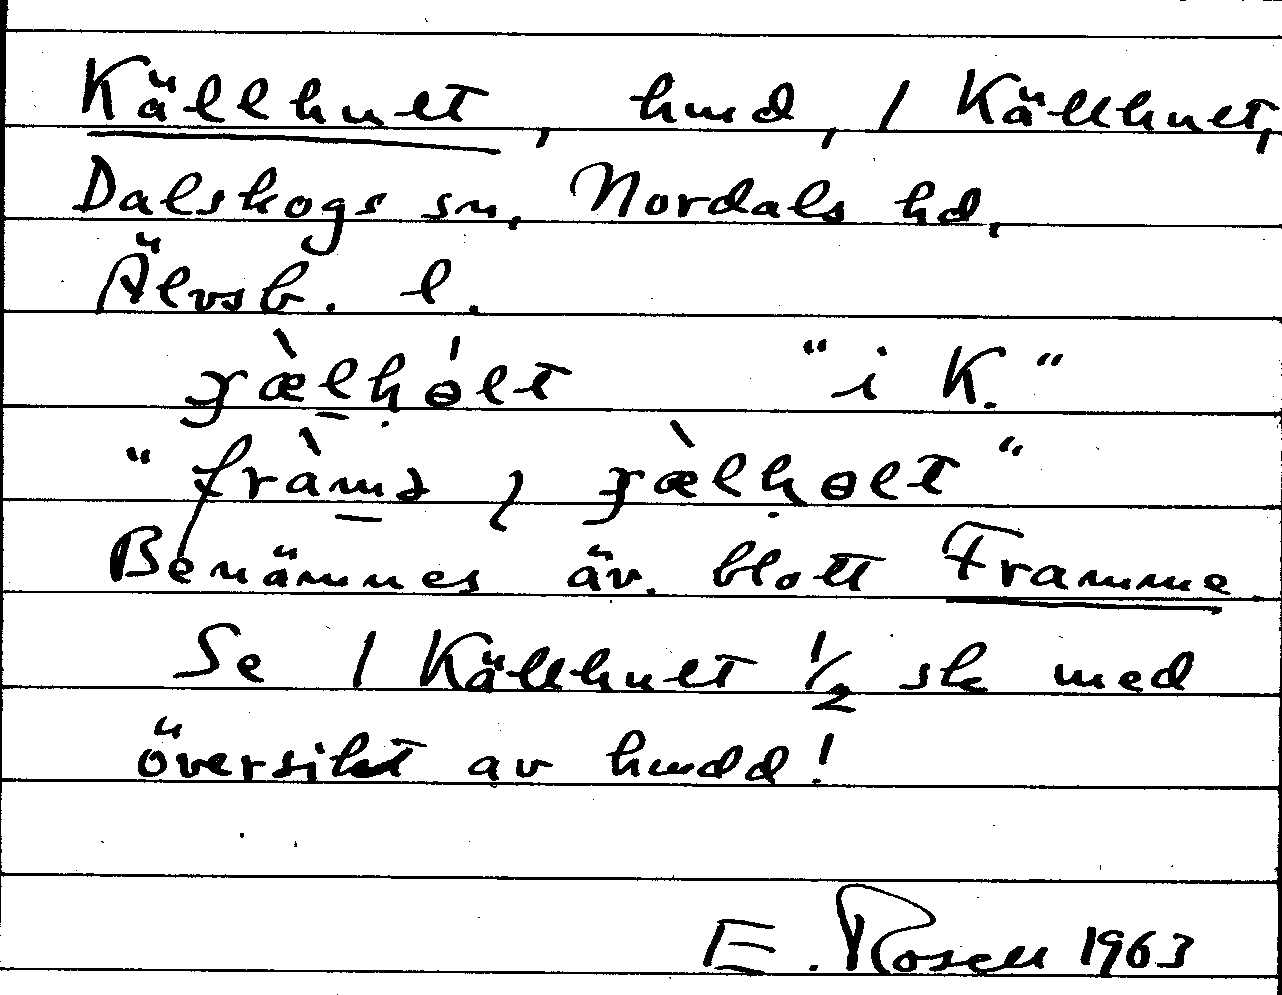 Källhult, hmd, 1 Källhult,
Dalskogs sn, Nordals hd,
Älvsb. l.
"i K."
Benämnes äv. blott Framme
Se 1 Källhult 1/2 sk med
översikt av hmdd!
E. Rosell 1963